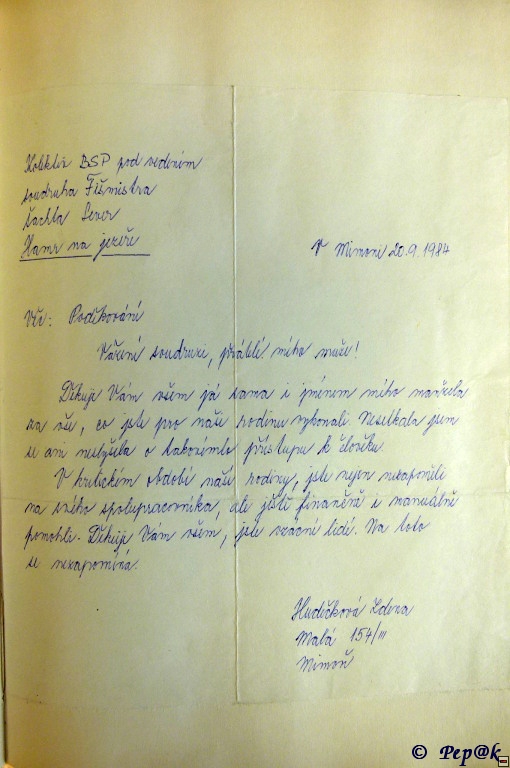 Kolektiv BSP pod vedením
soudruha Fišmistra
šachta Sever
Hamr na jezeře
V Mimoni 20.9.1984
Věc: Poděkování
Vážení soudruzi, přátelé mého muže!
Děkuji Vám všem já sama i jménem mého manžela
za vše, co jste pro naši rodinu vykonali. Nesetkala jsem
se ani neslyšela o takovémto přístupu k člověku.
V kritickém období naší rodiny, jste nejen nezapoměli
na svého spolupracovníka, ale ještě finančně i manuálně
pomohli. Děkuji Vám všem, jste vzácní lidé. Na toto
se nezapomíná.
Hudečková Zdena
Malá 154/III
Mimoň
© Pep@k